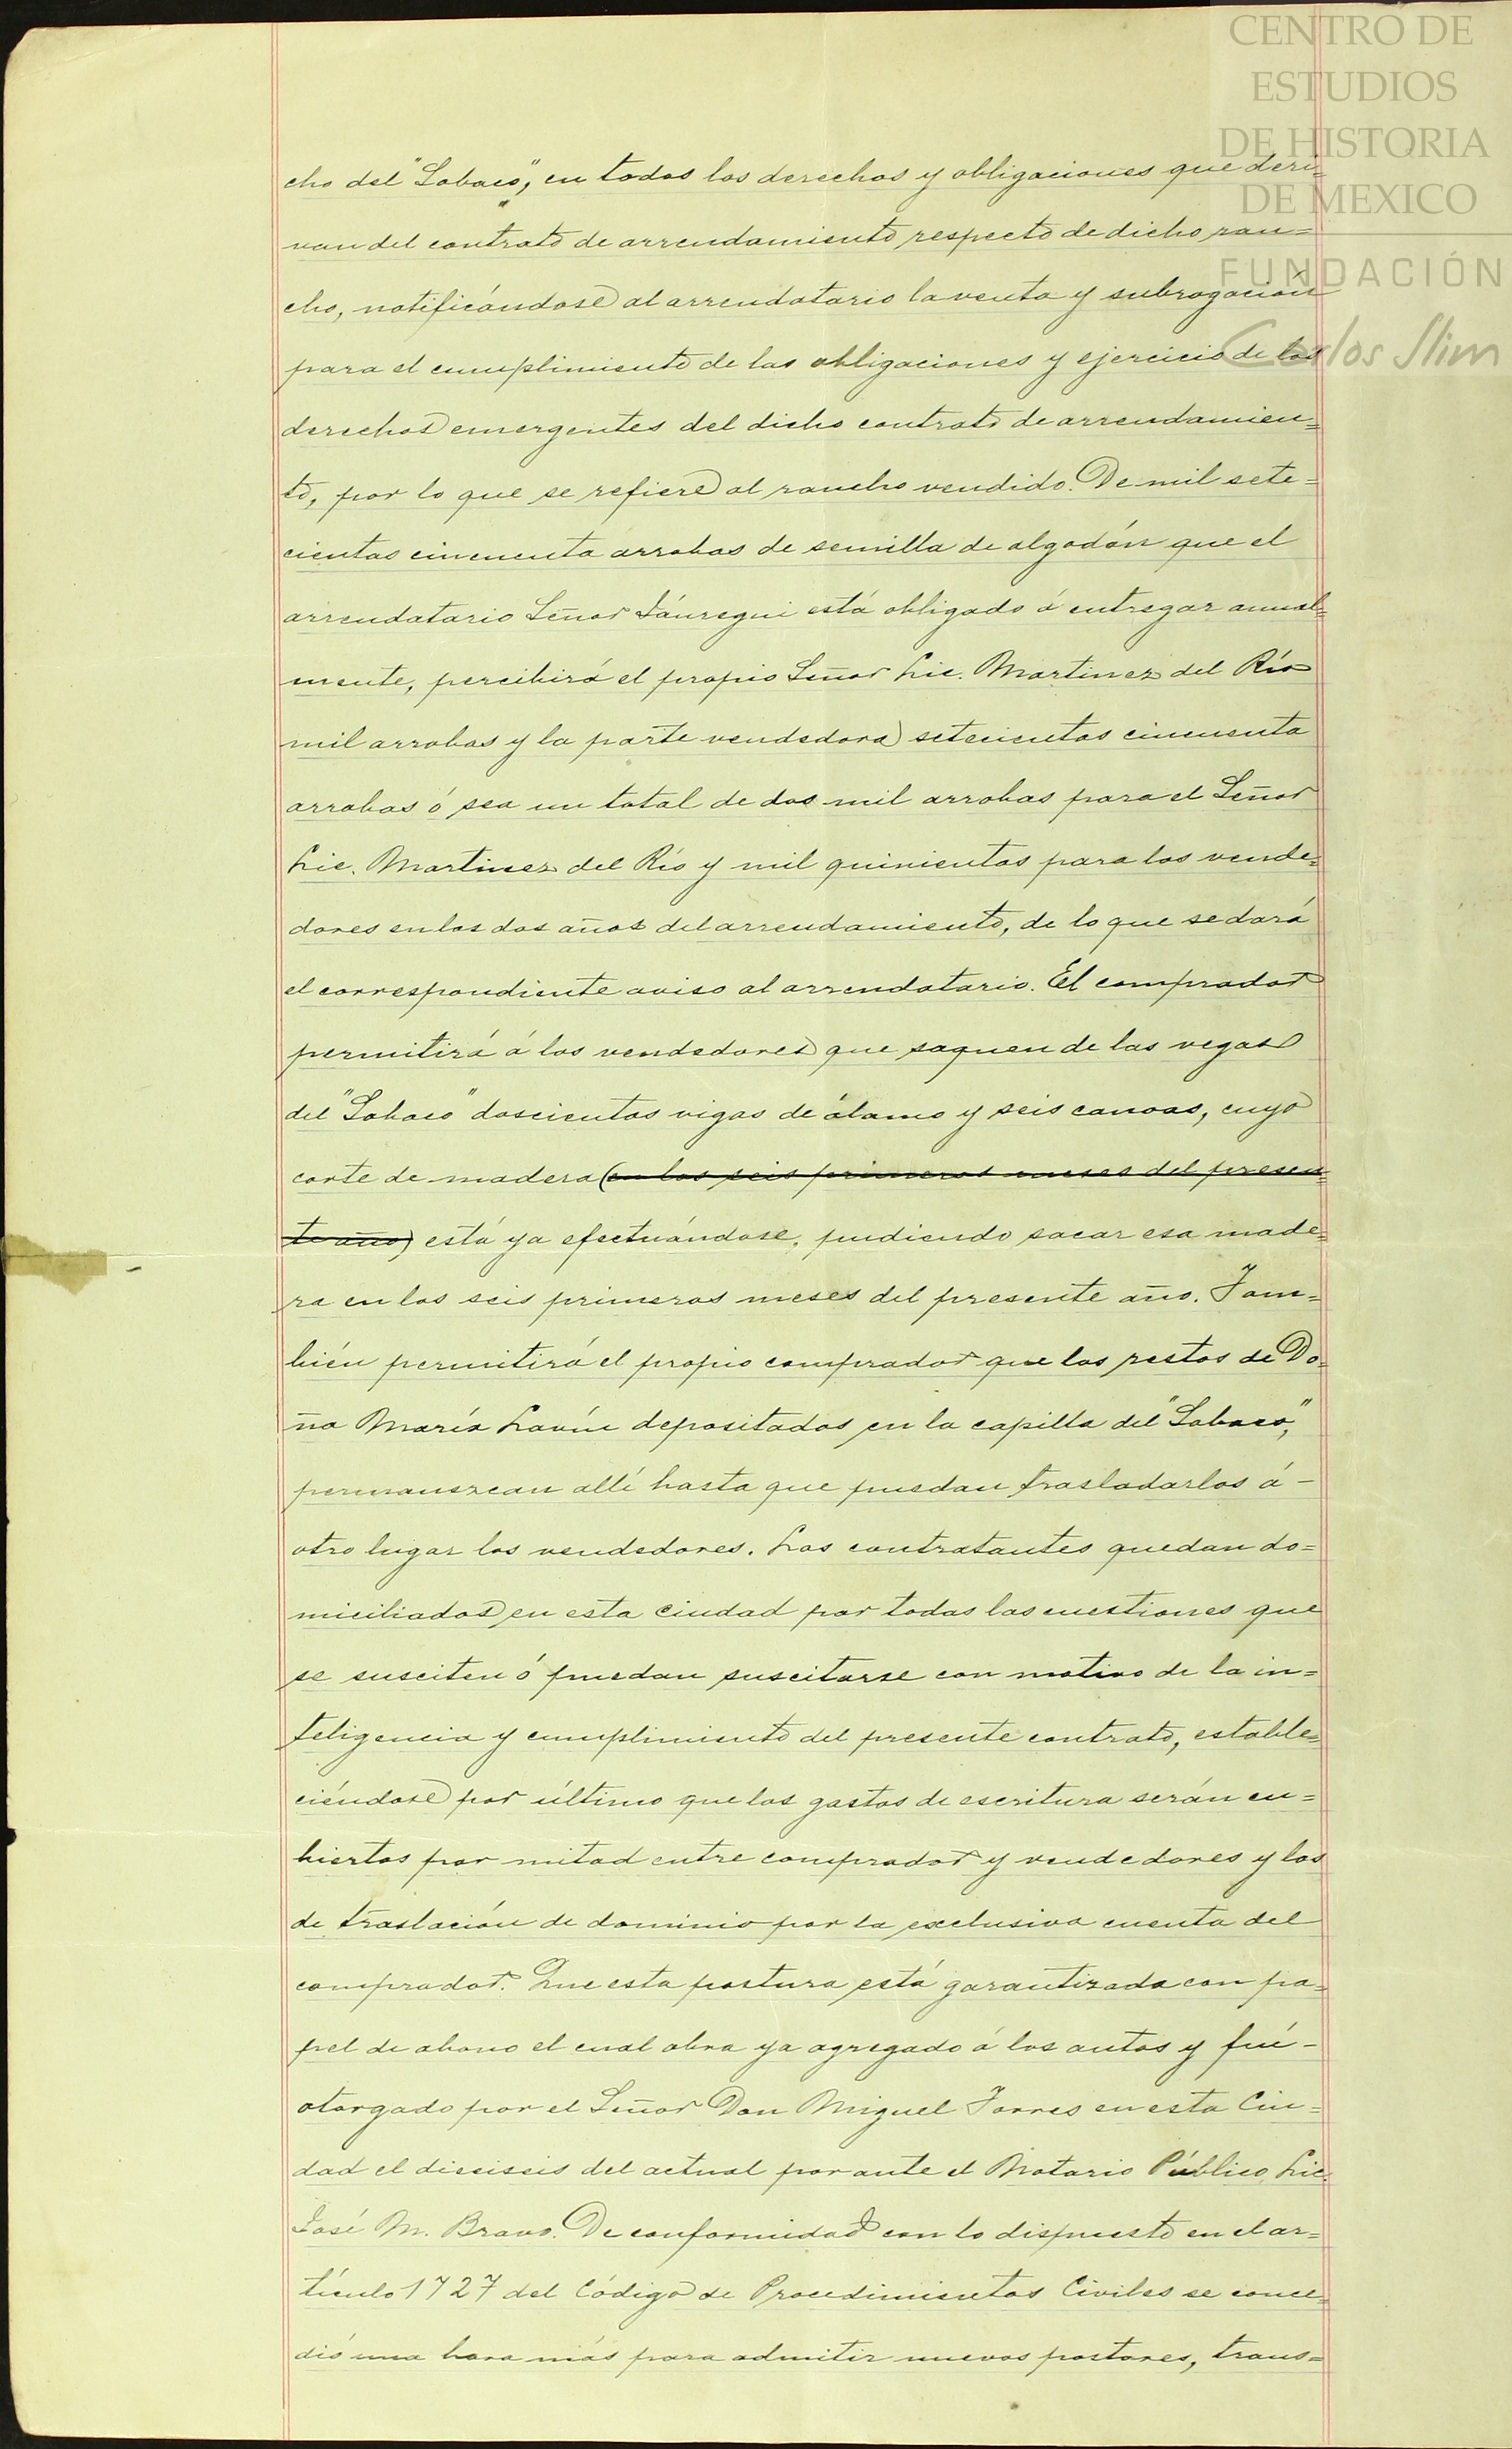 CENTRO DE
ESTUDIOS
DE HISTORIA
DE MEXICO
FUNDACIÓN
Carlos Slim
cho del "Sobaco", en todos los derechos y obligaciones que deri=
van del contrato de arrendamiento respecto de dicho ran=
cho, notificándose al arrendatario la venta y subrogación
para el cumplimiento de las obligaciones y ejercicio de los
derechos emergentes del dicho contrato de arrendamien=
to, por lo que se refiere al rancho vendido. De mil sete=
cientas cincuenta arrobas de semilla de algodón que el
arrendatario Señor Jáuregui está obligado á entregar anual=
mente, percibirá el propio Señor Lic. Martinez del Río
mil arrobas y la parte vendedora setecientas cincuenta
arrobas ó sea un total de dos mil arrobas para el Señor
Lic. Martinez del Río y mil quinientas para los vende=
dores en los dos años del arrendamiento, de lo que se dará
el correspondiente aviso al arrendatario. El comprador
permitirá á los vendedores que saquen de las vegas
del "Sobaco" doscientas vigas de álamo y seis canoas, cuyo
corte de madera (en los seis primeros meses del presen=
te año) está ya efectuándose, pudiendo sacar esa made=
ra en los seis primeros meses del presente año. Tam=
bién permitirá el propio comprador que los restos de Do=
ña María Lavín depositados en la capilla del "Sobaco",
permanezcan allí hasta que puedan trasladarlos á -
otro lugar los vendedores. Los contratantes quedan do=
miciliados en esta Ciudad por todas las cuestiones que
se susciten ó puedan suscitarse con motivo de la in=
teligencia y cumplimiento del presente contrato, estable=
ciéndose por último que los gastos de escritura serán cu=
biertos por mitad entre comprador y vendedores y los
de traslación de dominio por la exclusiva cuenta del
comprador. Que esta postura está garantizada con pa=
pel de abono el cual obra ya agregado á los autos y fué -
otorgado por el Señor Don Miguel Torres en esta Ciu=
dad el dieciseis del actual por ante el Notario Público Lic.
José M. Bravo. De conformidad con lo dispuesto en el ar=
tículo 1727 del Código de Procedimientos Civiles se conce=
dió una hora más para admitir nuevos postores, trans=